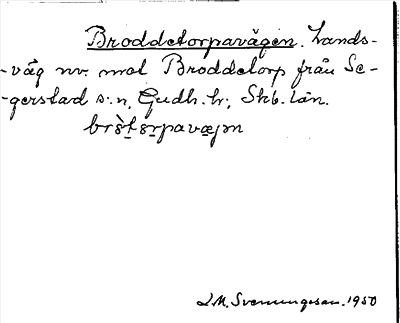 Broddetorpavägen. Lands-
-väg nv. mot Broddetorp från Se-
-gerstad s:n, Gudh. hr; Skb. län.
J.M. Svenungsson. 1950